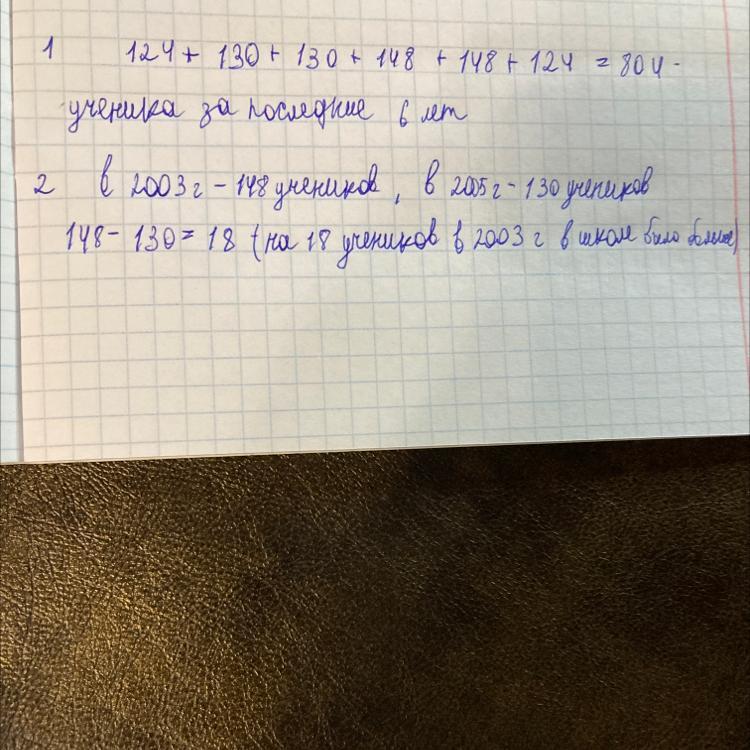 1 124 + 130 + 130 + 148 + 148 + 124 = 804 -
ученика за последние 6 лет
2 В 2003 г - 148 учеников, в 2005 г - 130 учеников
148 - 130 = 18 (на 18 учеников в 2003 г в школе было больше)